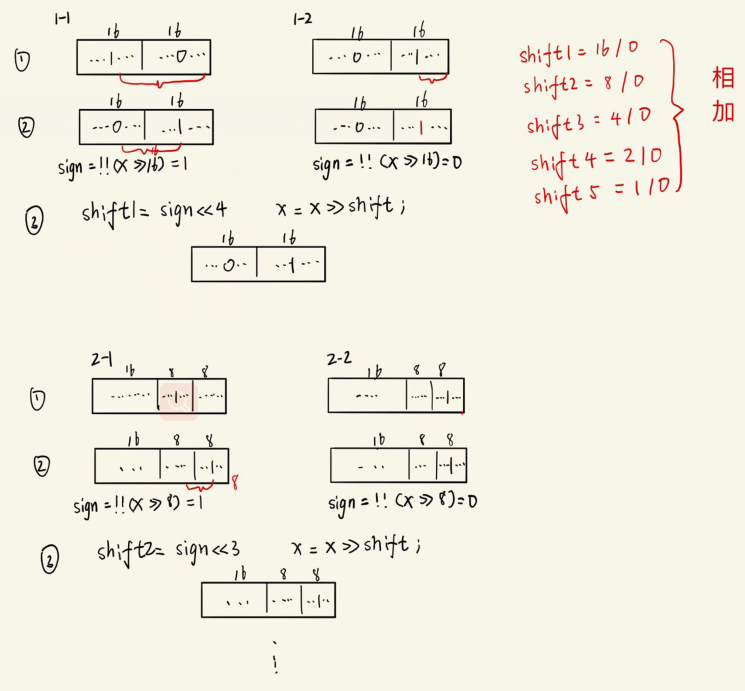 1-1
1-2
16 16
16 16
① ...1... ...0...
...0... ...1...
shift1 = 16/0
shift2 = 8/0
shift3 = 4/0
shift4 = 2/0
shift5 = 1/0
相加
16 16
16 16
② ...0... ...1...
16
...0... ...1...
sign = !!(x >> 16) = 1
sign = !!(x >> 16) = 0
② shift1 = sign << 4 x = x >> shift;
16 16
...0... ...1...
2-1
2-2
16 8 8
16 8 8
① ...... ...1... ......
.... .... ...1...
16 8 8
16 8 8
② ... .... ...1...
8
... ... ...1...
sign = !!(x >> 8) = 1
sign = !!(x >> 8) = 0
② shift2 = sign << 3 x = x >> shift;
16 8 8
... .... ...1...